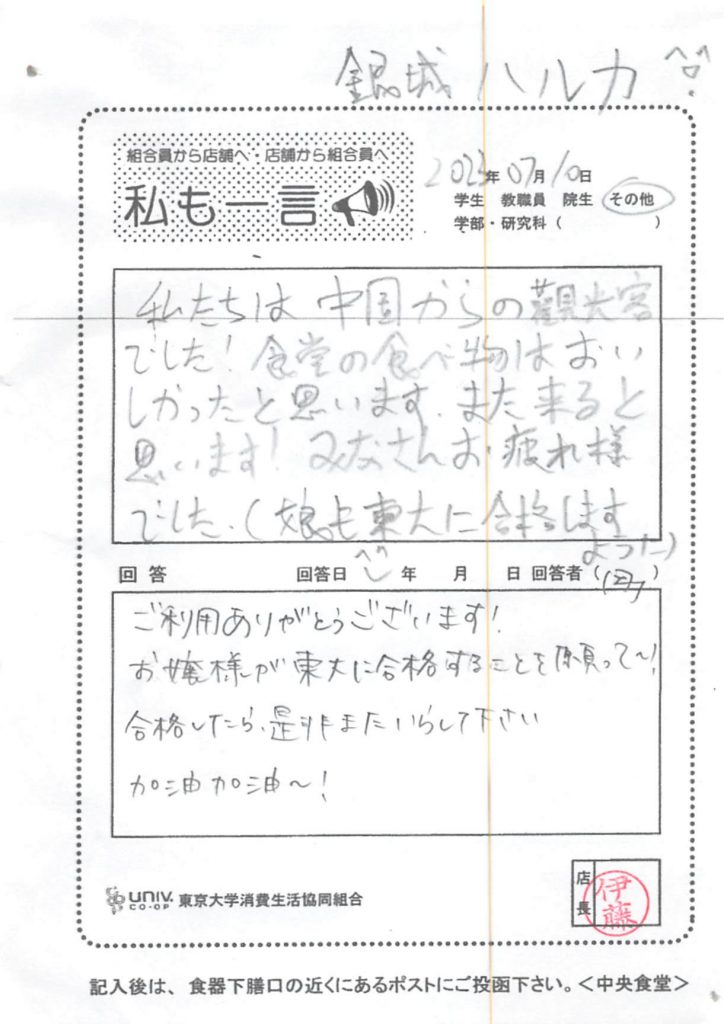 銀城ハルカ
組合員から店舗へ・店舗から組合員へ
私も一言
2023年07月10日
学生 教職員 院生 その他
学部・研究科( )
私たちは中国からの観光客
でした!食堂の食べ物はおい
しかったと思います.また来ると
思います!みなさんお疲れ様
でした.(娘も東大に合格します
ように)
回答 回答日 年 月 日 回答者( )
ご利用ありがとうございます!
お嬢様が東大に合格することを願って~!
合格したら、是非またいらして下さい
加油加油~!
UNIV. CO-OP 東京大学消費生活協同組合
店長 伊藤
記入後は、食器下膳口の近くにあるポストにご投函下さい。<中央食堂>